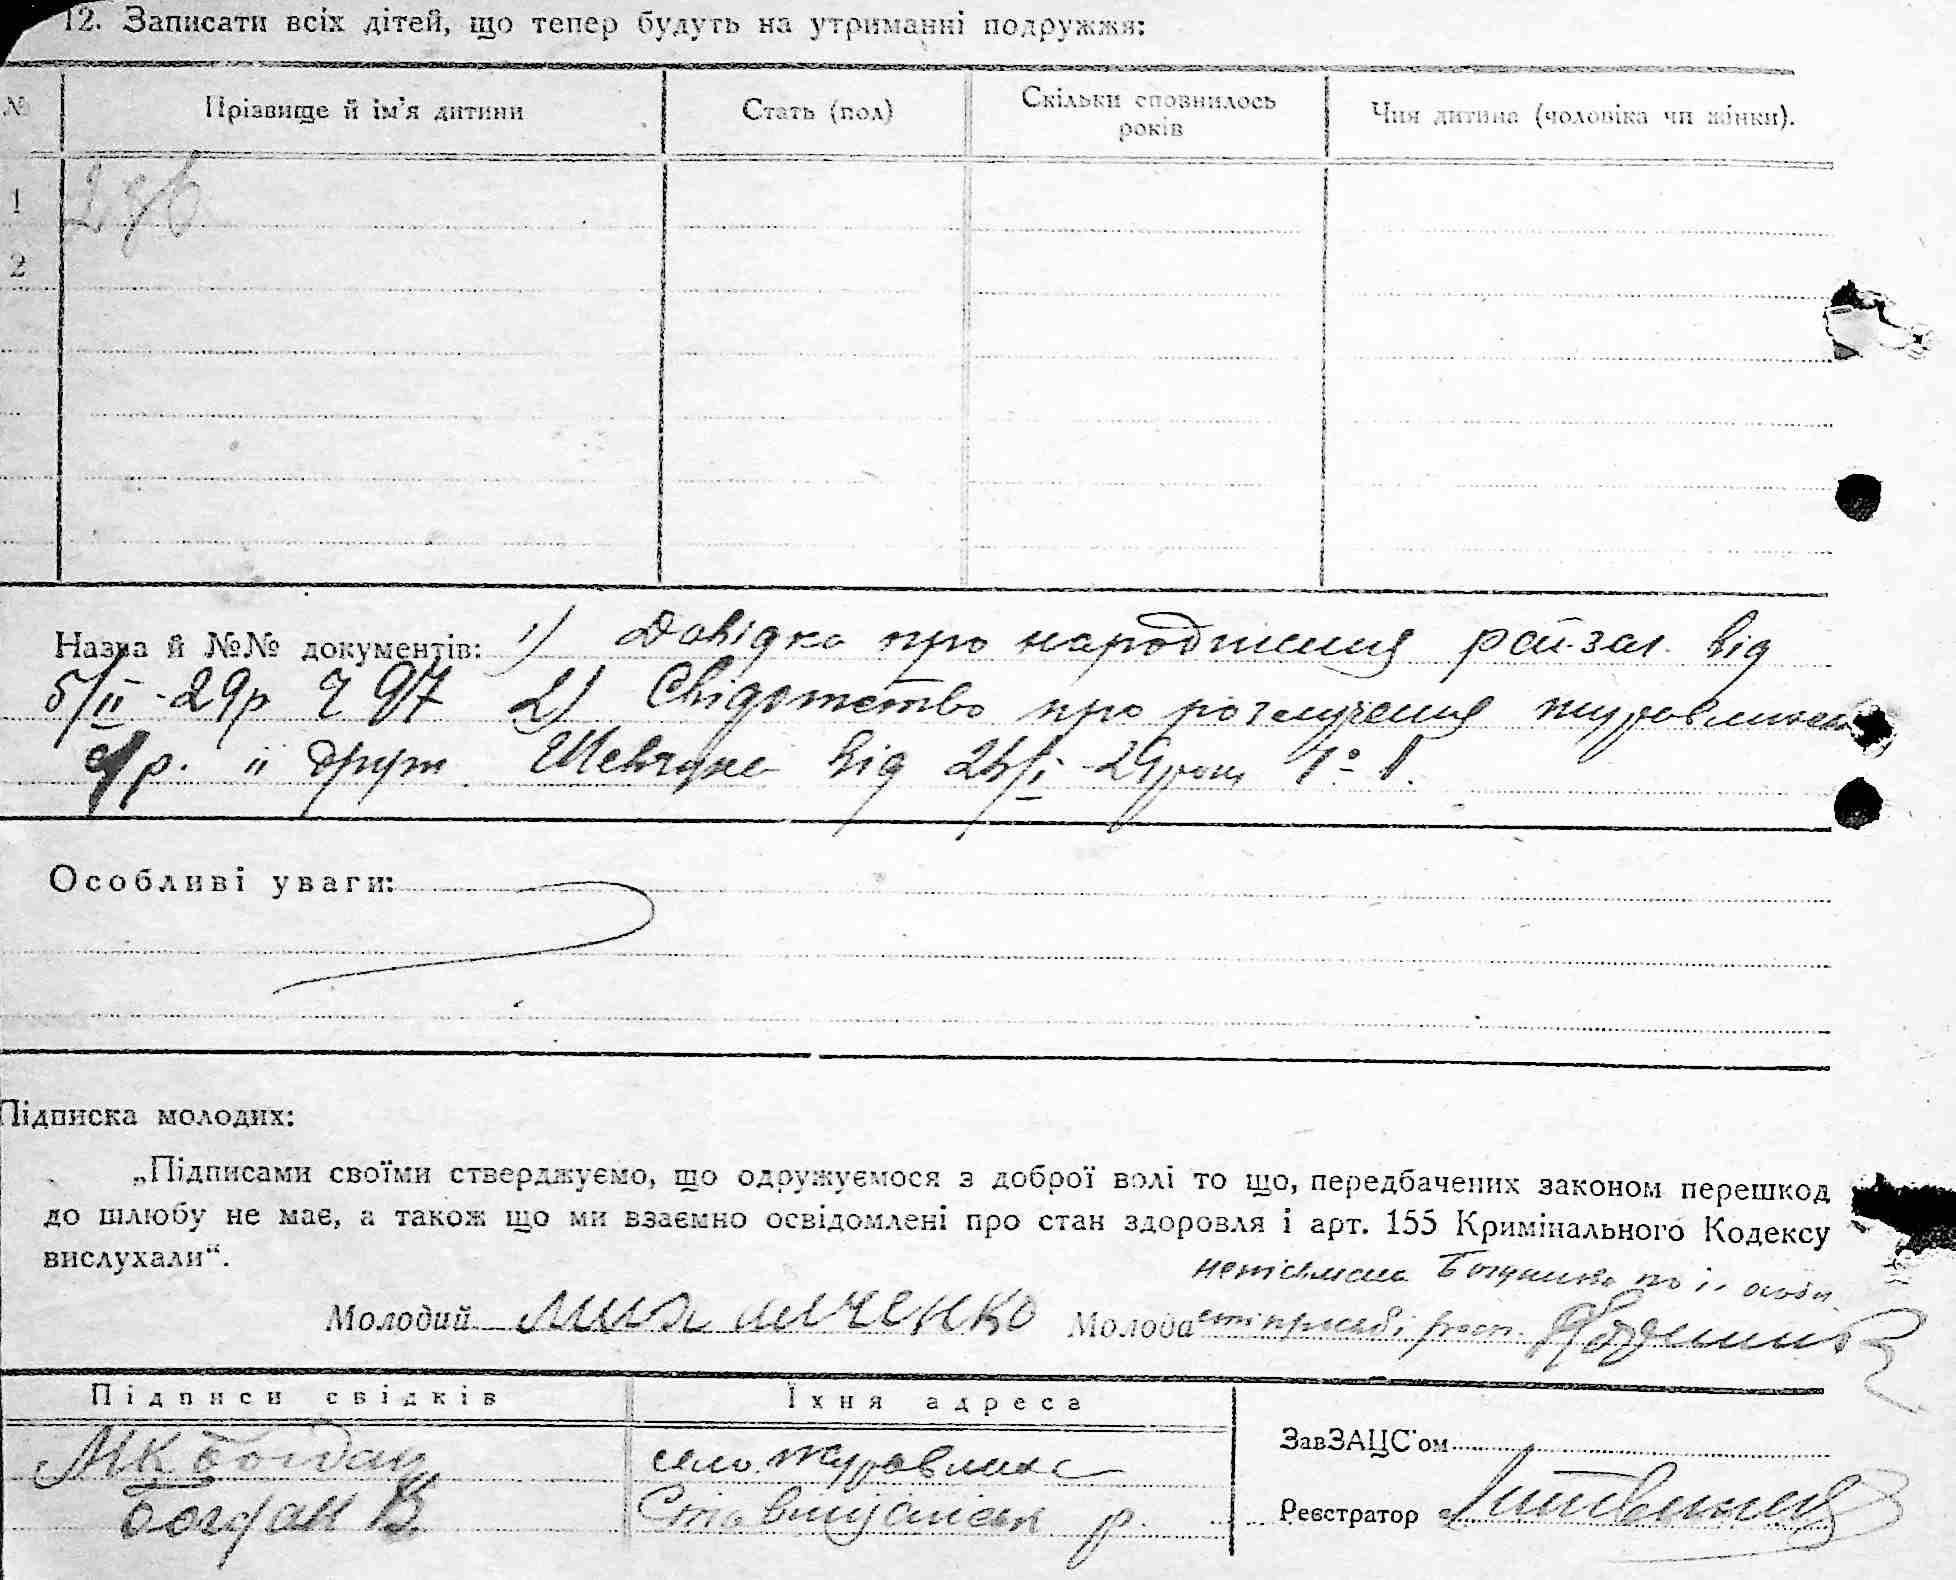 12. Записати всіх дітей, що тепер будуть на утриманні подружжя:
№ Прізвище й ім'я дитини Стать (пол) Скільки сповнилось років Чия дитина (чоловіка чи жінки).
1
2
Назва й №№ документів: 1) Довідка про народження рай.заг. від
5/II-29р 2) Свідотство про розлучення
р. її друг Шевчука від I 29 року № 1.
Особливі уваги:
Підписка молодих:
„Підписами своїми стверджуємо, що одружуємося з доброї волі то що, передбачених законом перешкод
до шлюбу не має, а також що ми взаємно освідомлені про стан здоровля і арт. 155 Кримінального Кодексу
вислухали“.
неписьмена по її особи
Молодий Молода
Підписи свідків Їхня адреса
ЗавЗАЦС'ом
МК Богдан село Журавлиха
Богдан В. Ставищанськ р.
Реєстратор